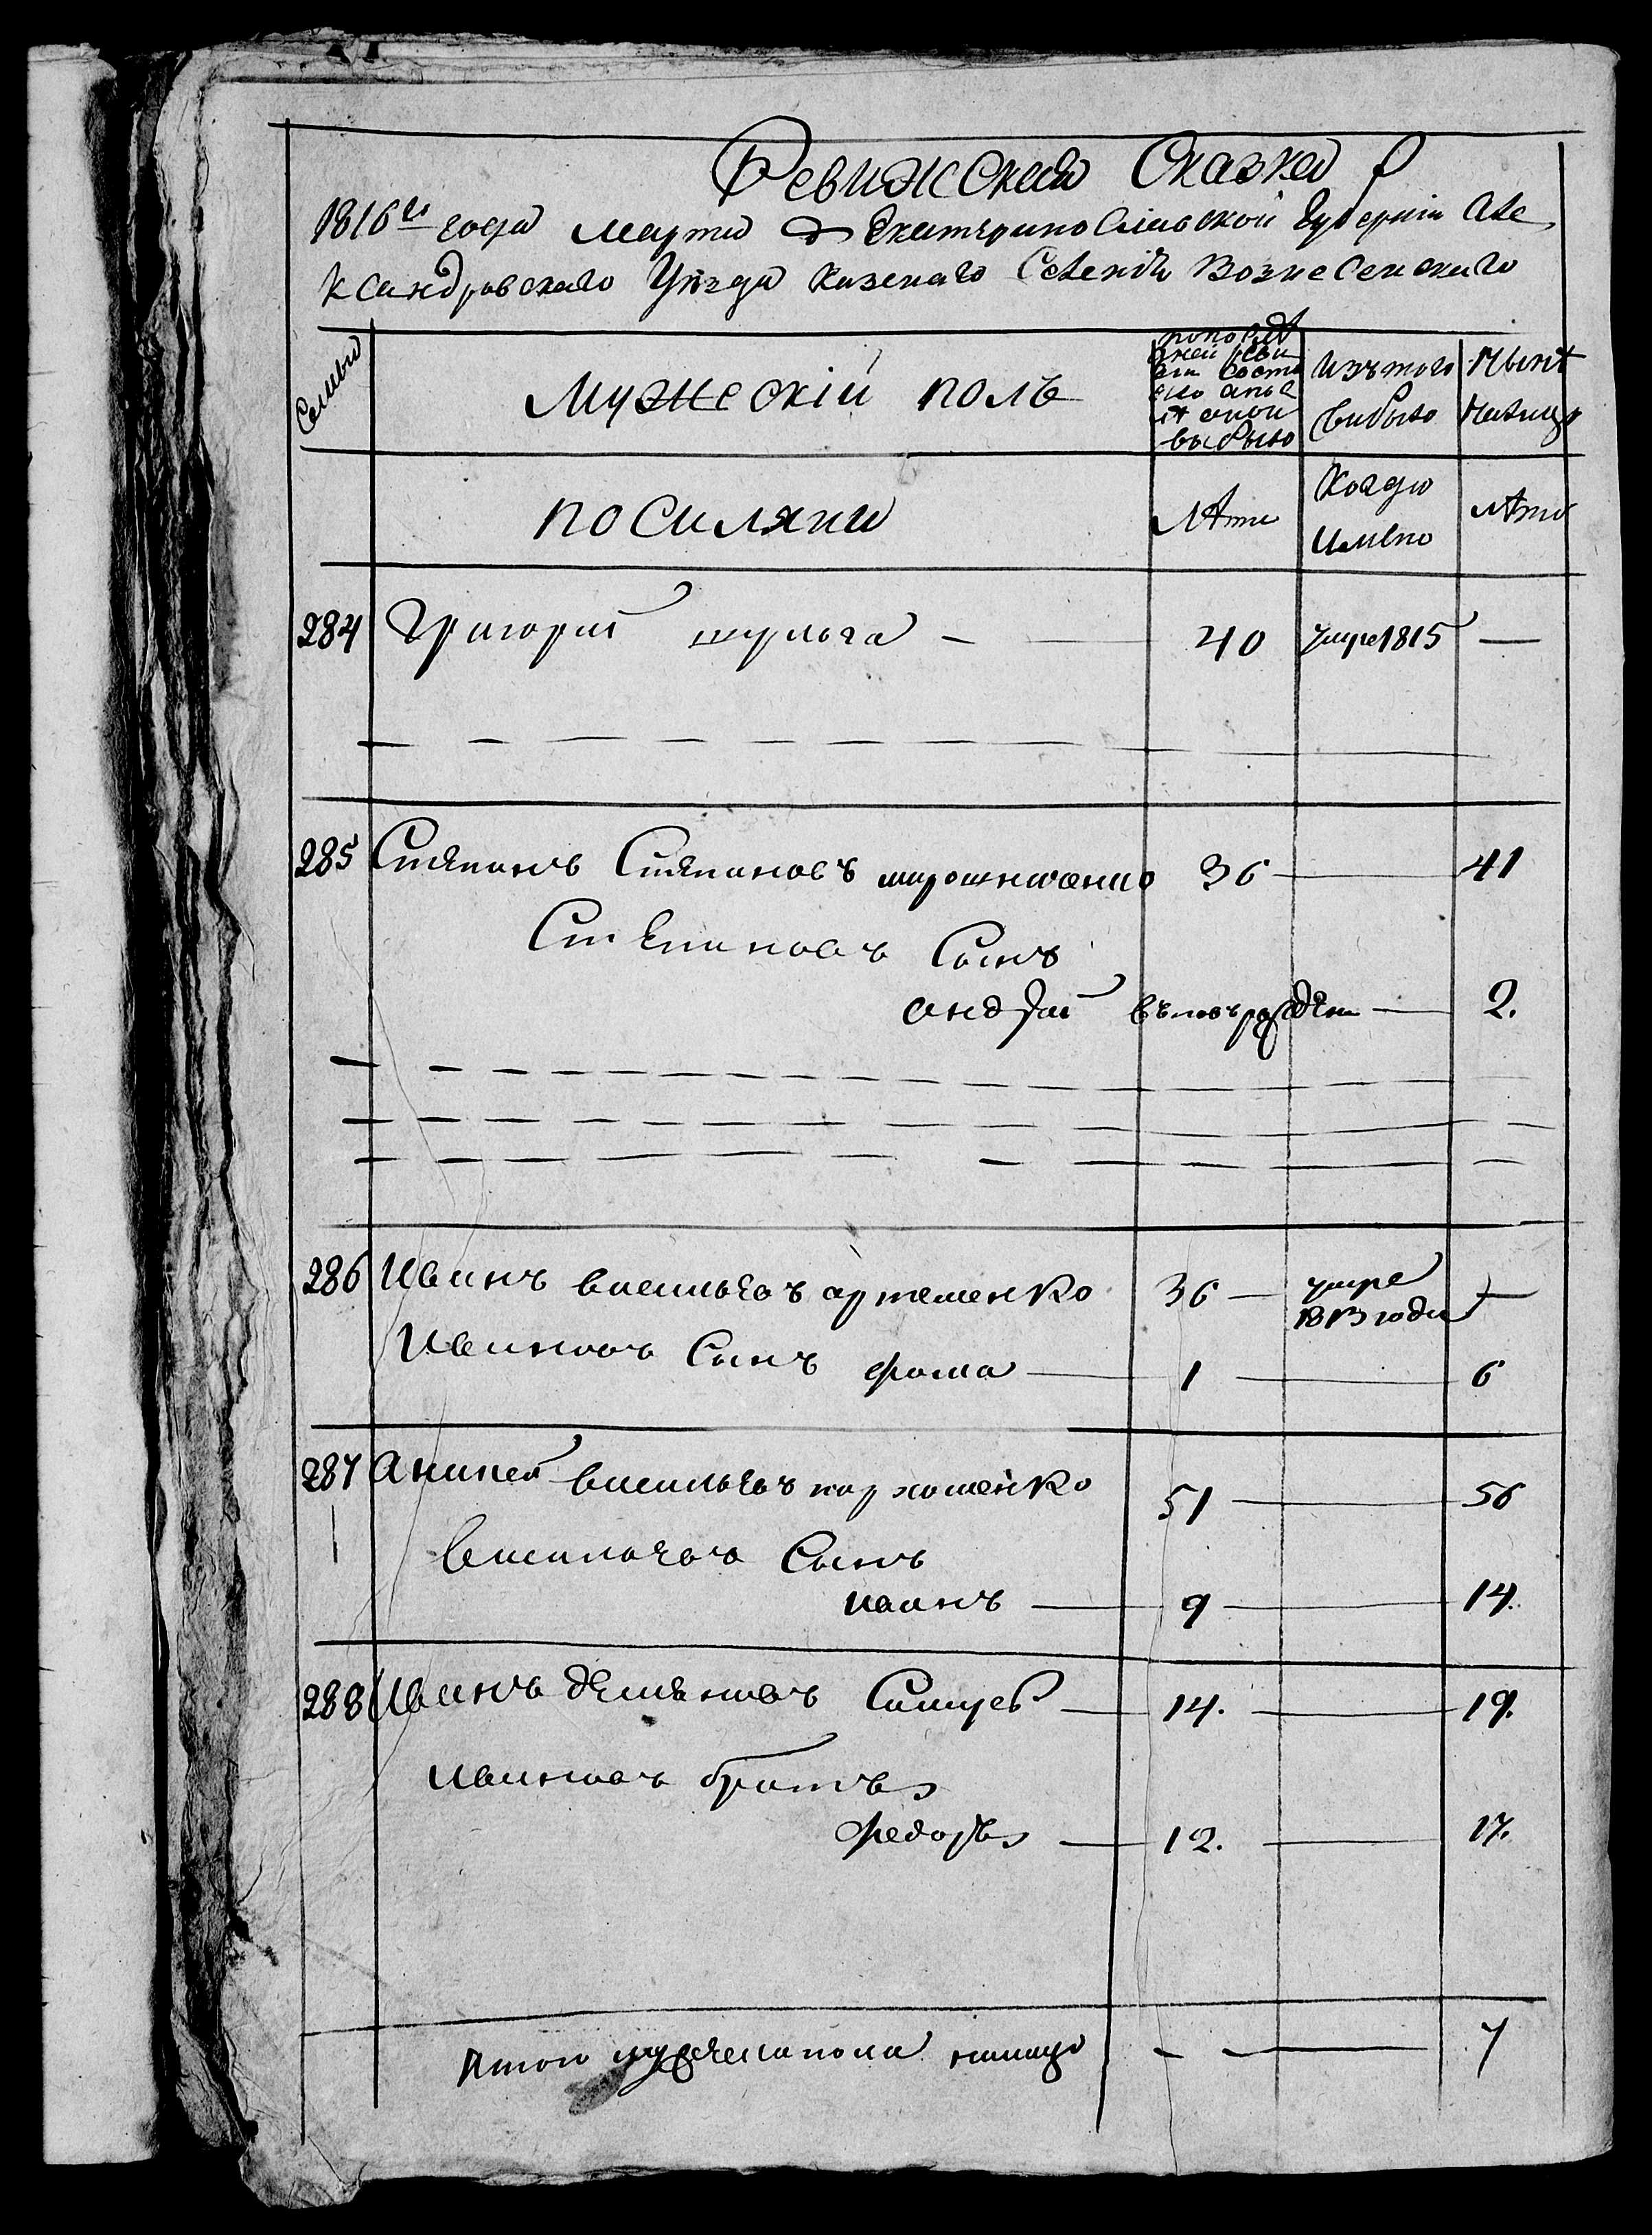 Ревижская Сказка
1816го года Марта Екатеринославской Губерніи Але
ксандровскаго Уѣзда казенаго Селенія Вознесенскаго
Семьи
Мужескій полъ
попослѣд
ней реви
зіи состо
яло
выбыло
Изътого
выбыло
Нынѣ
налицо
поселяни
Лѣта
Когда
имено
Лѣта
284 Григорій шульга — 40 умре 1815 —
285 Стѣпанъ Стѣпановъ мирошниченко 36 — 41
Стѣпановъ Сынъ
андрѣй въновърожден — 2.
286 Иванъ васильевъ артеменко 36 — умре
1813 года —
Ивановъ Сынъ фома — 1 — 6
287 васильевъ пархоменко 51 — 56
васильевъ Сынъ
иванъ — 9 — 14.
288 Иванъ демьяновъ — 14. — 19.
ивановъ братъ
федоръ — 12. — 17.
Итого мужеска пола налицо — — 7